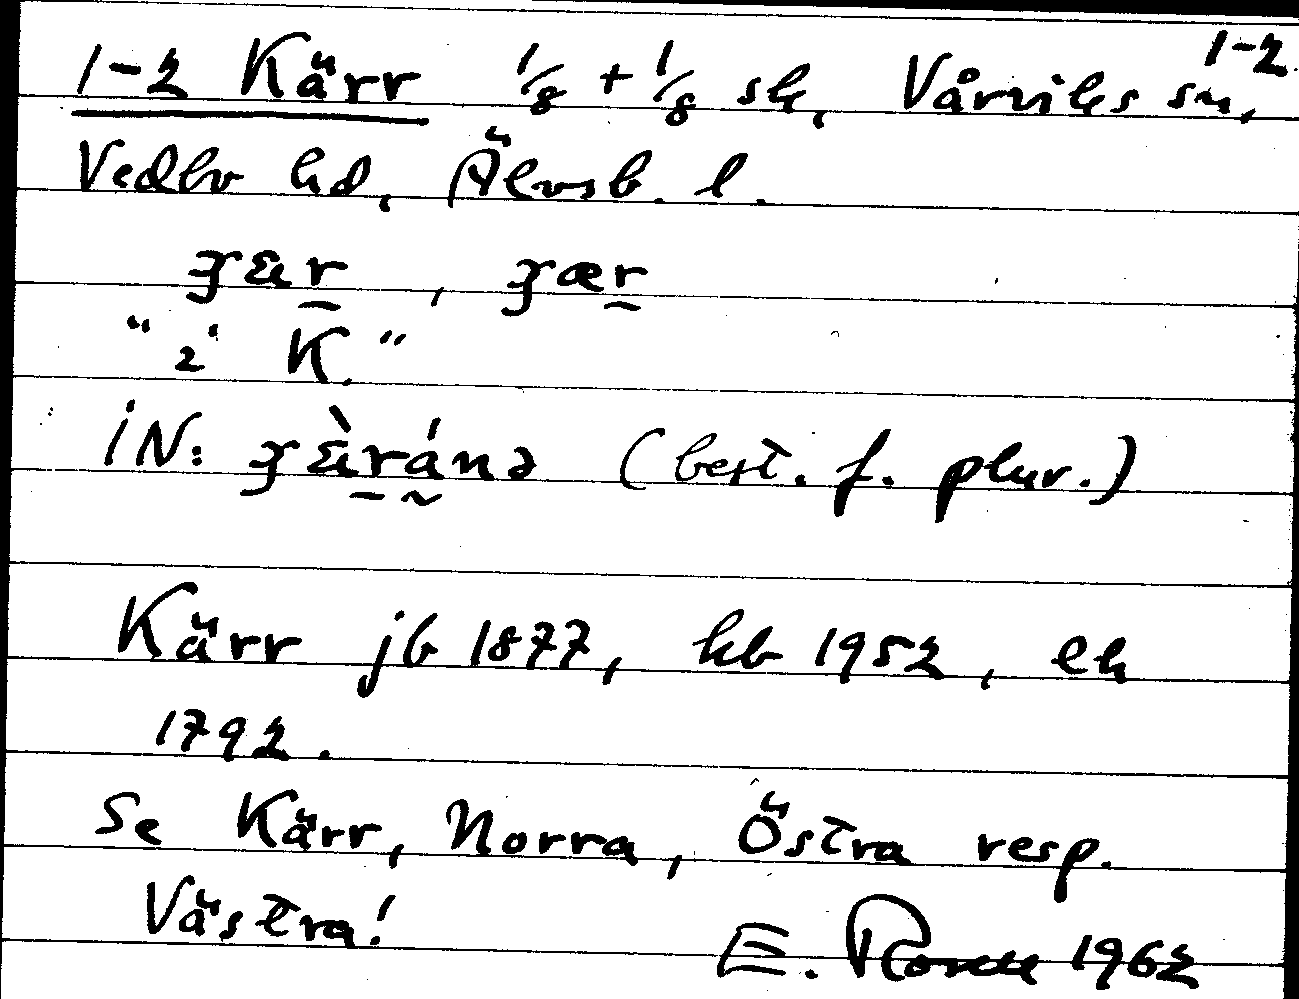 1-2
1-2 Kärr 1/8 + 1/8 sk, Vårviks sn,
Vedbo hd, Älvsb. l.
ʒɛr, ʒær
"i K."
IN: ʒɛ̀ránə (best. f. plur.)
Kärr jb 1877, kb 1952, ek
1792.
Se Kärr, Norra, Östra resp.
Västra!
E. 1962